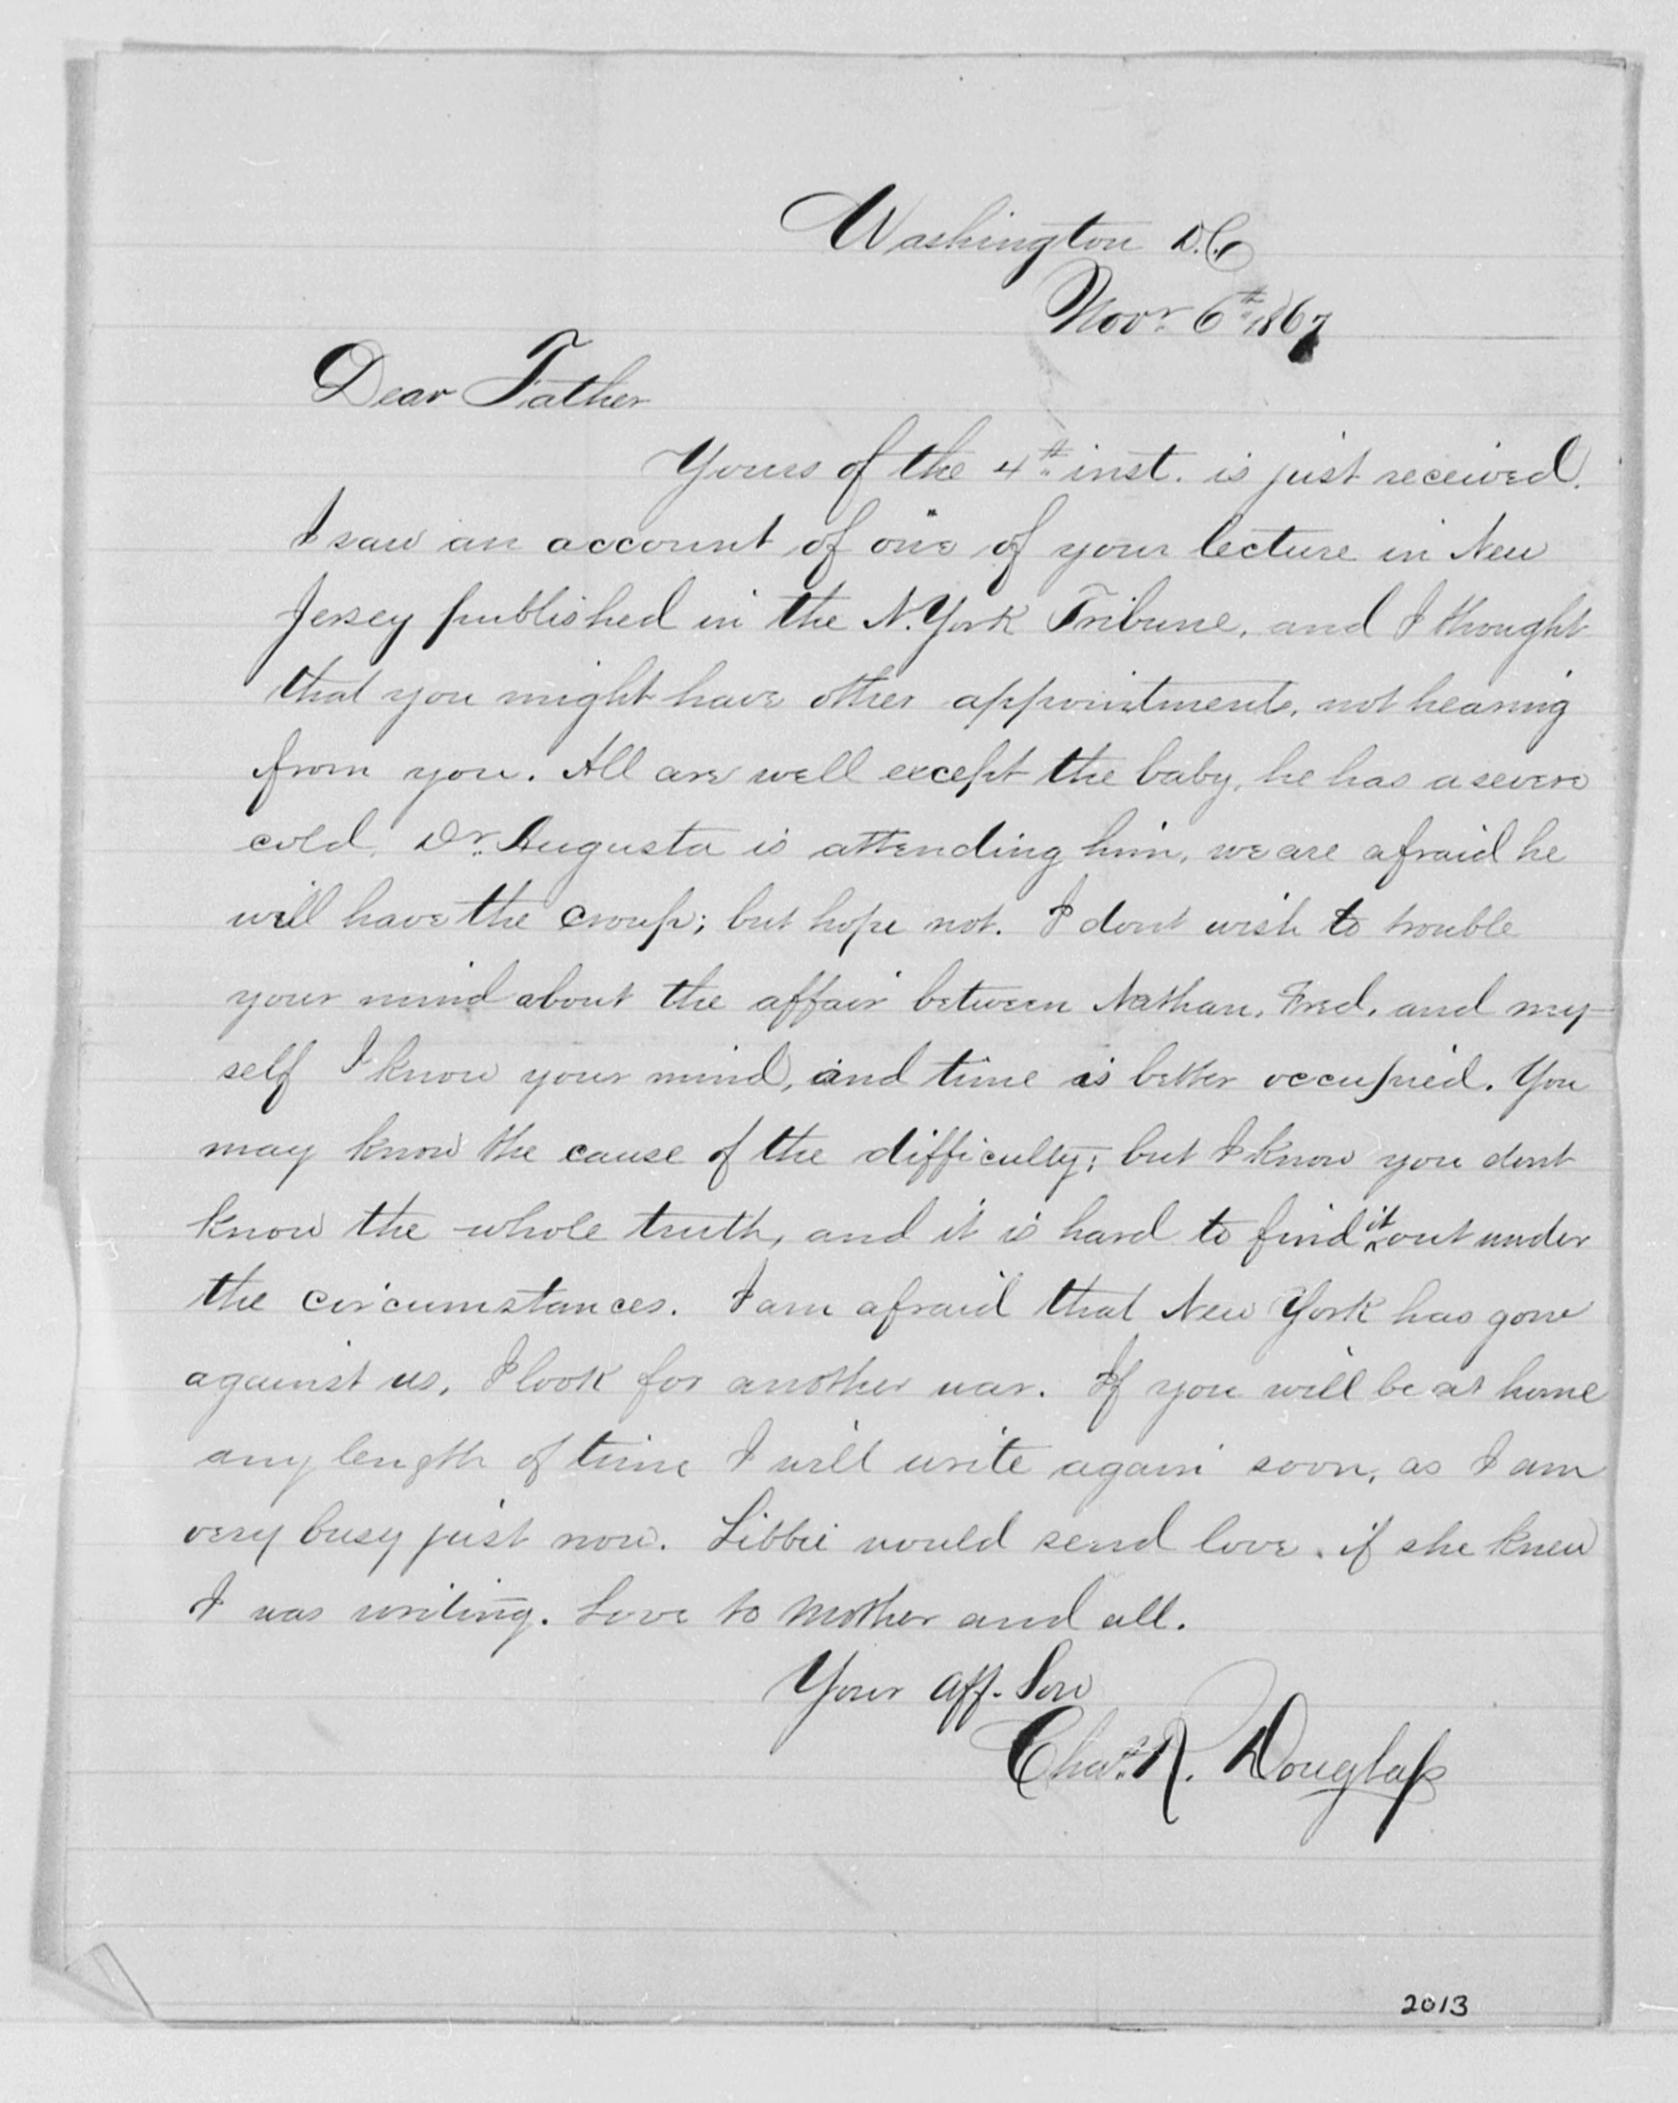 Washington D.C.
Novr. 6th 1867
Dear Father
Yours of the 4th inst. is just received.
I saw an account of one of your lecture in New
Jersey published in the N. York Tribune, and I thought
that you might have other appointments, not hearing
from you. All are well except the baby, he has a severe
cold, Dr. Augusta is attending him, we are afraid he
will have the croup; but hope not. I dont wish to trouble
your mind about the affair between Nathan, Fred, and my-
self I know your mind, and time is better occupied. You
may know the cause of the difficulty; but I know you dont
know the whole truth, and it is hard to find it out under
the circumstances. I am afraid that New York has gone
against us, I look for another war. If you will be at home
any length of time I will write again soon, as I am
very busy just now. Libbie would send love, if she knew
I was writing. Love to Mother and all.
Your aff. Son
Chas. R. Douglass
2013